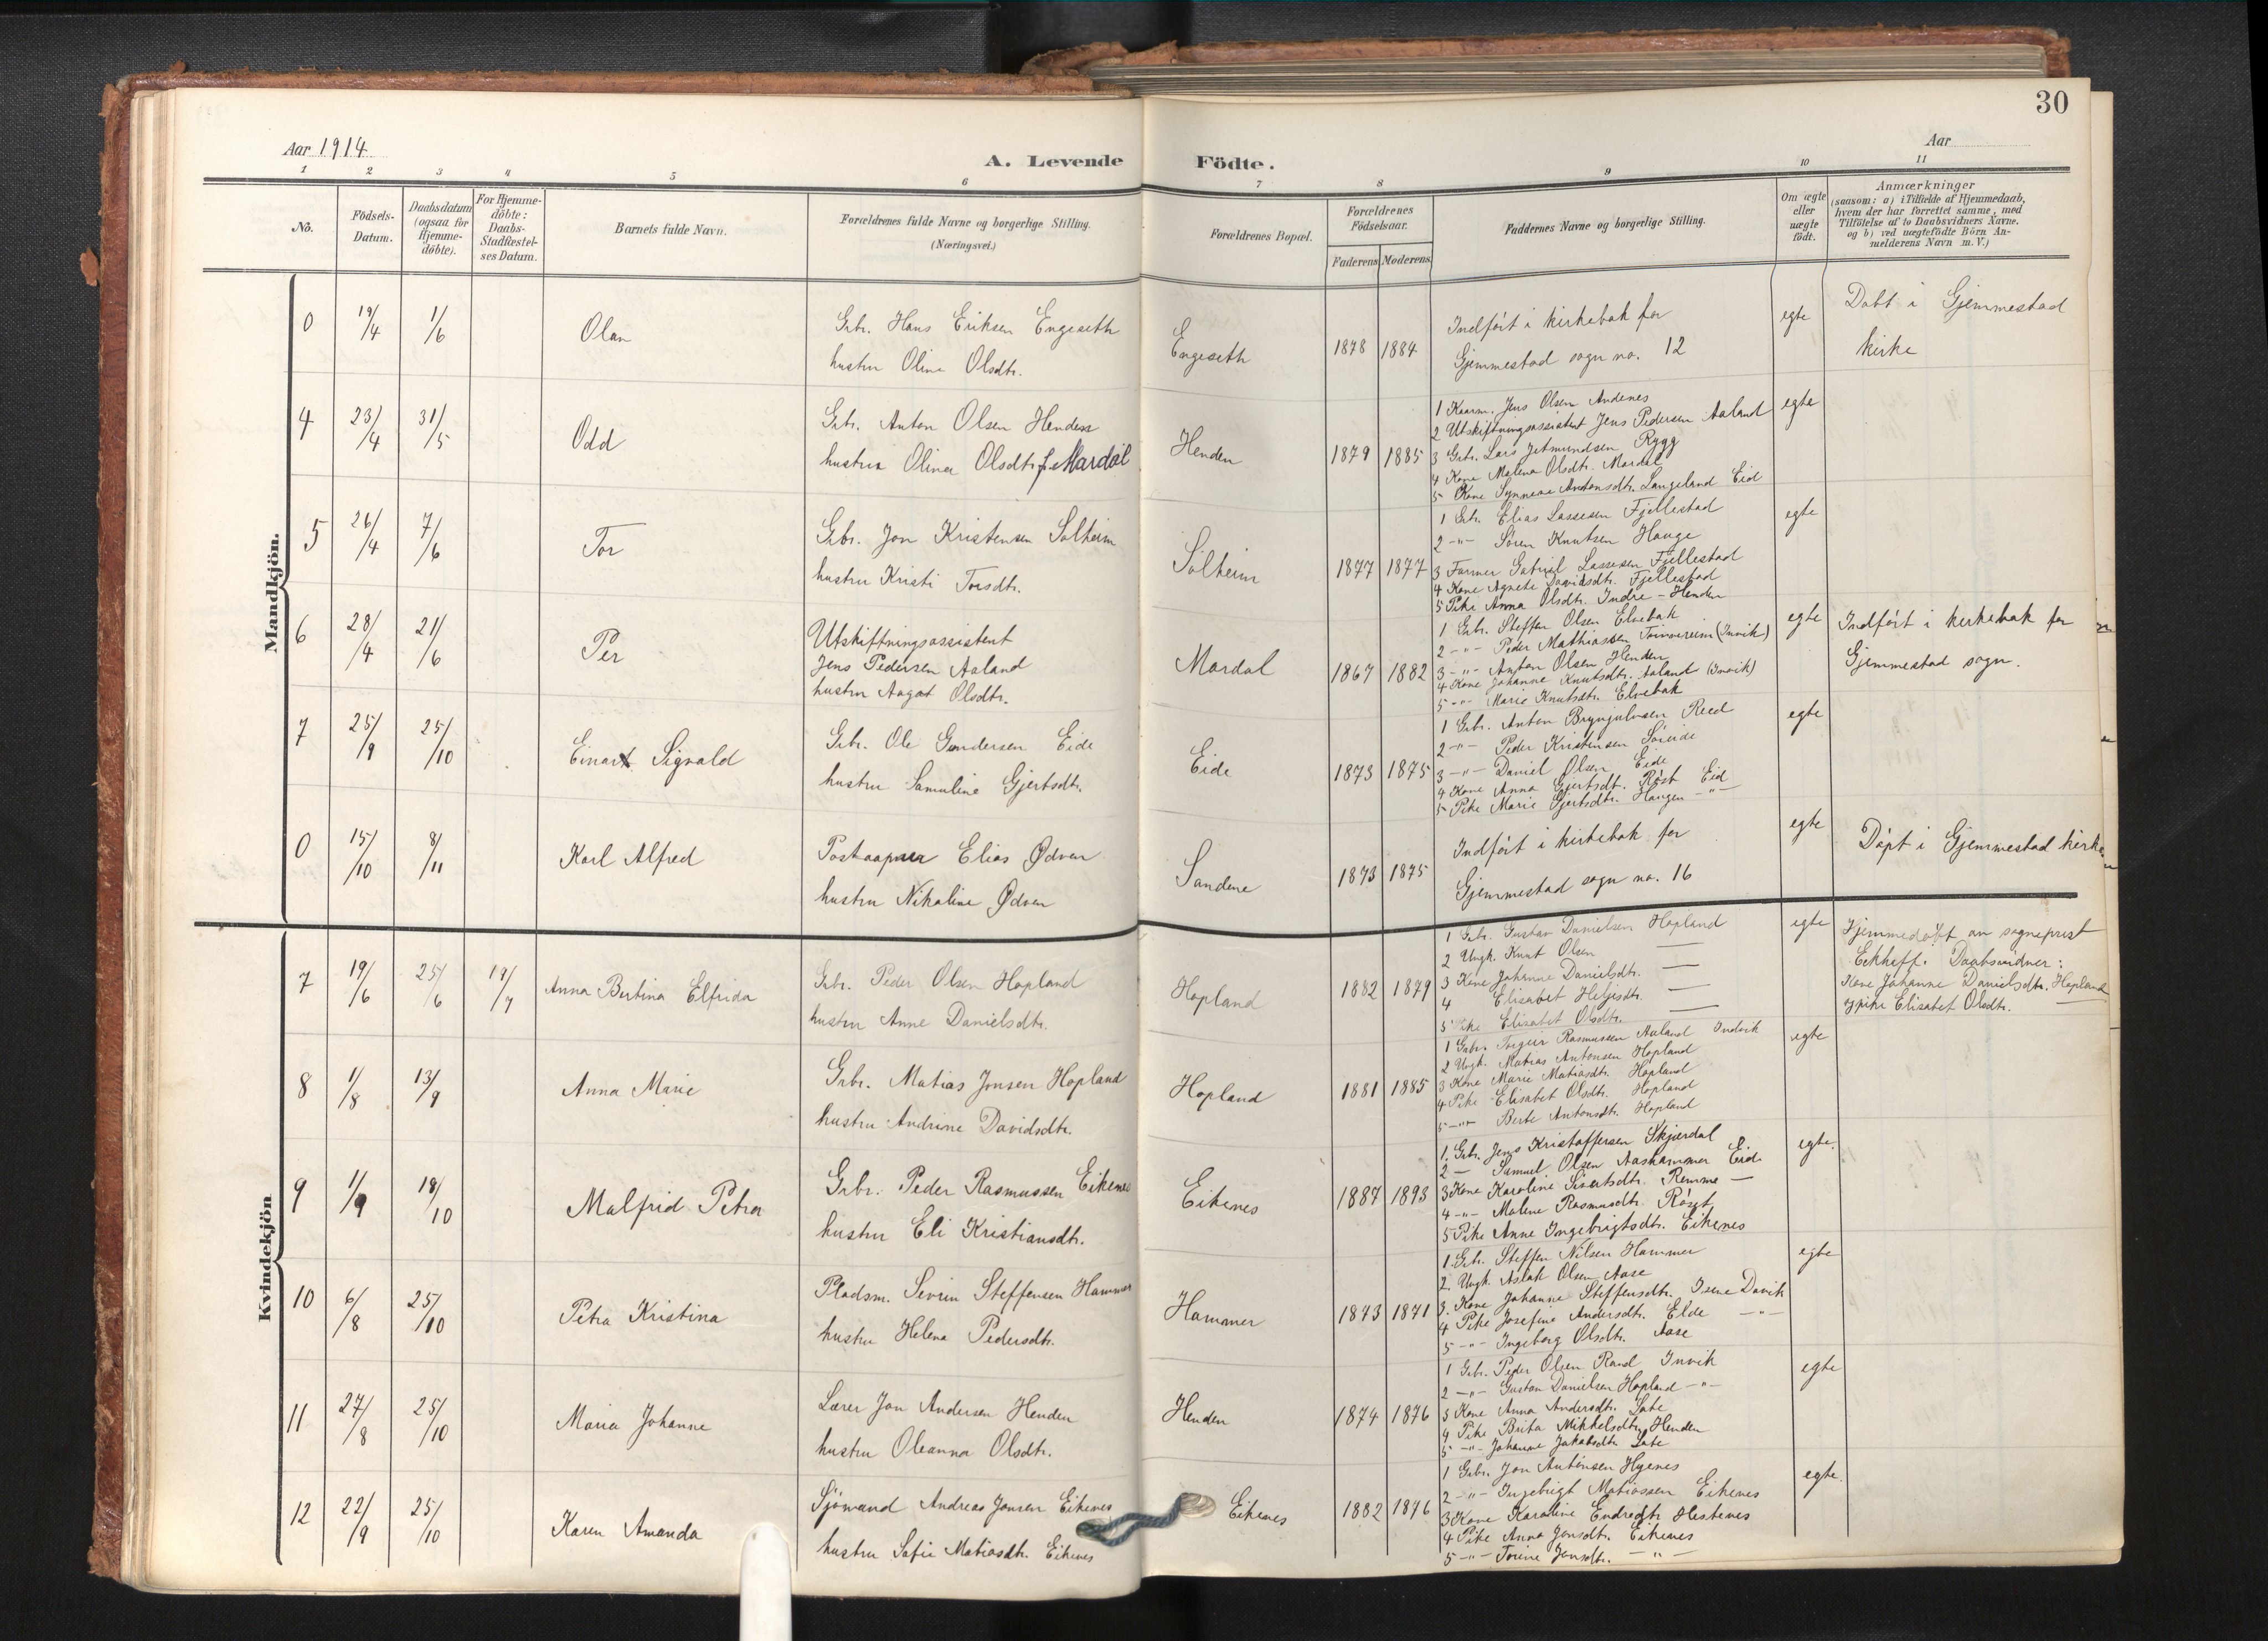 30
Aar 1914
Aar
A. Levende Födte.
1 2 3 4 5 6 7 8 9 10 11
No.
Födsels-Datum.
Daabsdatum (ogsaa for Hjemme-döbte).
For Hjemme-döbte: Daabs-Stadfæstel-ses Datum.
Barnets fulde Navn.
Forældrenes fulde Navne og borgerlige Stilling.
(Næringsvei.)
Forældrenes Bopæl.
Forældrenes Födselsaar.
Faderens Moderens
Faddernes Navne og borgerlige Stilling.
Om ægte eller uægte födt.
Anmærkninger
(saasom: a) i Tilfælde af Hjemmedaab, hvem der har forrettet samme, med Tilföielse af to Daabsvidners Navne. og b) ved uægtefödte Börn An-melderens Navn m. V.)
Mandkjön.
0 19/4 1/6 Olan
Grbr. Hans Eriksen Engeseth
hustru Oline Olsdtr.
Engeseth 1878 1884
Indført i kirkebok for
Gjemmestad sogn no. 12
egte
Døbt i Gjemmestad
kirke
4 23/4 31/5 Odd
Grbr. Anton Olsen Henden
hustru Olina Olsdtr. f. Mardal
Henden 1879 1885
1 Kaarm. Jens Olsen Andenes
2 Utskiftningsassistent Jens Pedersen Aaland
3 Grbr. Lars Jetmundsen Rygg
4 Kone Malena Olsdtr. Mardal
5 Kone Synneve Antonsdtr. Langeland Eid
egte
5 26/4 7/6 Tor
Grbr. Jon Kristensen Solheim
hustru Kristi Torsdtr.
Solheim 1877 1877
1 Grbr. Elias Lassesen Fjellestad
2 -"- Søren Knutsen Hauge
3 Farmer Gabriel Lassesen Fjellestad
4 Kone Agnete Davidsdtr. Fjellestad
5 Pike Anna Olsdtr. Indre-Henden
egte
6 28/4 21/6 Per
Utskiftningsassistent
Jens Pedersen Aaland
hustru Aagot Olsdtr.
Mardal 1867 1882
1 Grbr. Steffen Olsen Elvebak
2 -"- Peder Mathiassen (Invik)
3 -"- Anton Olsen Henden
4 Kone Johanne Knutsdtr. Aaland (Invik)
5 -"- Marie Knutsdtr. Elvebak
egte
Indført i kirkebok for
Gjemmestad sogn.
7 25/9 25/10 Einar Sigvald
Grbr. Ole Gundersen Eide
hustru Samuline Gjertsdtr.
Eide 1873 1875
1 Grbr. Anton Brynjulvsen Reed
2 -"- Peder Kristensen Søreide
3 -"- Daniel Olsen Eide
4 Kone Anna Gjertsdtr. Røst Eid
5 Pike Marie Gjertsdtr. Haugen -"-
egte
0 15/10 8/11 Karl Alfred
Postaapner Elias Ødven
hustru Nikoline Ødven
Sandene 1873 1875
Indført i kirkebok for
Gjemmestad sogn no. 16
egte
Døpt i Gjemmestad kirke
Kvindekjön
7 19/6 25/6 19/7 Anna Bertina Elfrida
Grbr. Peder Olsen Hopland
hustru Anne Danielsdtr.
Hopland 1882 1879
1 Grbr. Gustav Danielsen Hopland
2 Ungk. Knut Olsen —
3 Kone Johanne Danielsdtr. —
4 Elisabet Helgesdtr. —
5 Pike Elisabet Olsdtr. —
egte
Hjemmedøpt av sogneprest
Eckhoff. Daabsvidner:
Kone Johanne Danielsdtr. Hopland
og pike Elisabet Olsdtr. —
8 1/8 13/9 Anna Marie
Grbr. Matias Jonsen Hopland
hustru Andrine Davidsdtr.
Hopland 1881 1885
1 Grbr. Torgeir Rasmussen Aaland Indvik
2 Ungk. Matias Antonsen Hopland
3 Kone Marie Matiasdtr. Hopland
4 Pike Elisabet Olsdtr. Hopland
5 -"- Berte Antonsdtr. Hopland
egte
9 1/9 18/10 Malfrid Petra
Grbr. Peder Rasmussen Eikenes
hustru Eli Kristiansdtr.
Eikenes 1887 1893
1. Grbr. Jens Kristoffersen Skjærdal
2 — Samuel Olsen Aashammer Eid
3 Kone Karoline Sivertsdtr. Remme —
4 -"- Malene Rasmusdtr. Røsst
5 Pike Anne Ingebrigtsdtr. Eikenes
egte.
10 6/8 25/10 Petra Kristina
Pladsm. Sevrin Steffensen Hammer
hustru Helena Pedersdtr.
Hammer 1873 1871
1. Grbr. Steffen Nilsen Hammer
2. Ungk. Aslak Olsen Aase
3. Kone Johanne Steffensdtr. Isene Davik
4 Pike Josefine Andersdtr. Elde -"-
5 -"- Ingeborg Olsdtr. Aase
egte
11 27/8 25/10 Maria Johanne
Lærer Jon Andersen Henden
hustru Oleanna Olsdtr.
Henden 1874 1876
1 Grbr. Peder Olsen Rand Invik
2 -"- Gustav Danielsen Hopland -"-
3 Kone Anna Andersdtr. Lote
4 Pike Brita Mikkelsdtr. Henden
5 -"- Johanne Jakobsdtr. Lote
egte
12 22/9 25/10 Karen Amanda
Sjømand Andreas Jonsen Eikenes
hustru Sofie Matiasdtr. Eikenes
Eikenes 1882 1876
1 Grbr. Jon Antonsen Hyenes
2 -"- Ingebrigt Matiassen Eikenes
3 Kone Karoline Endredtr. Hestenes
4 Pike Anna Jonsdtr. Eikenes
5 -"- Torine Jensdtr. -"-
egte.